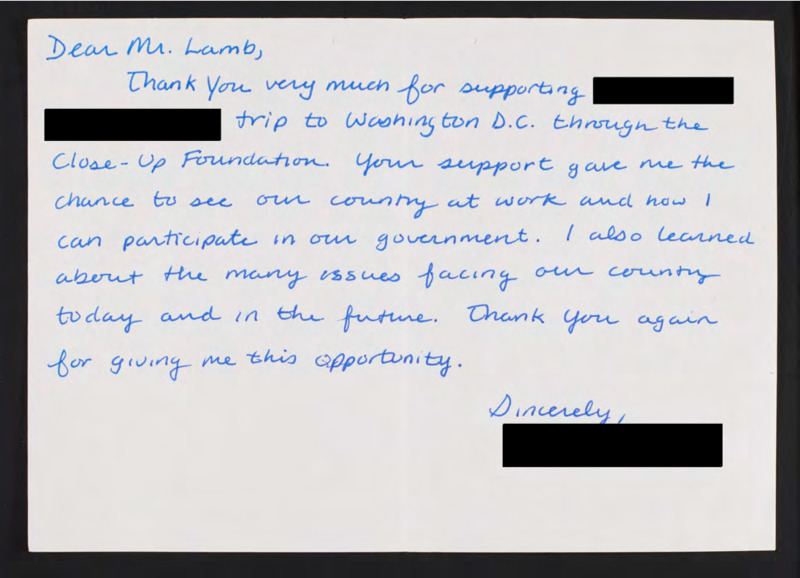 Dear Mr. Lamb,
Thank you very much for supporting
trip to Washington D.C. through the
Close-Up Foundation. Your support gave me the
chance to see our country at work and how I
can participate in our government. I also learned
about the many issues facing our country
today and in the future. Thank you again
for giving me this opportunity.
Sincerely,